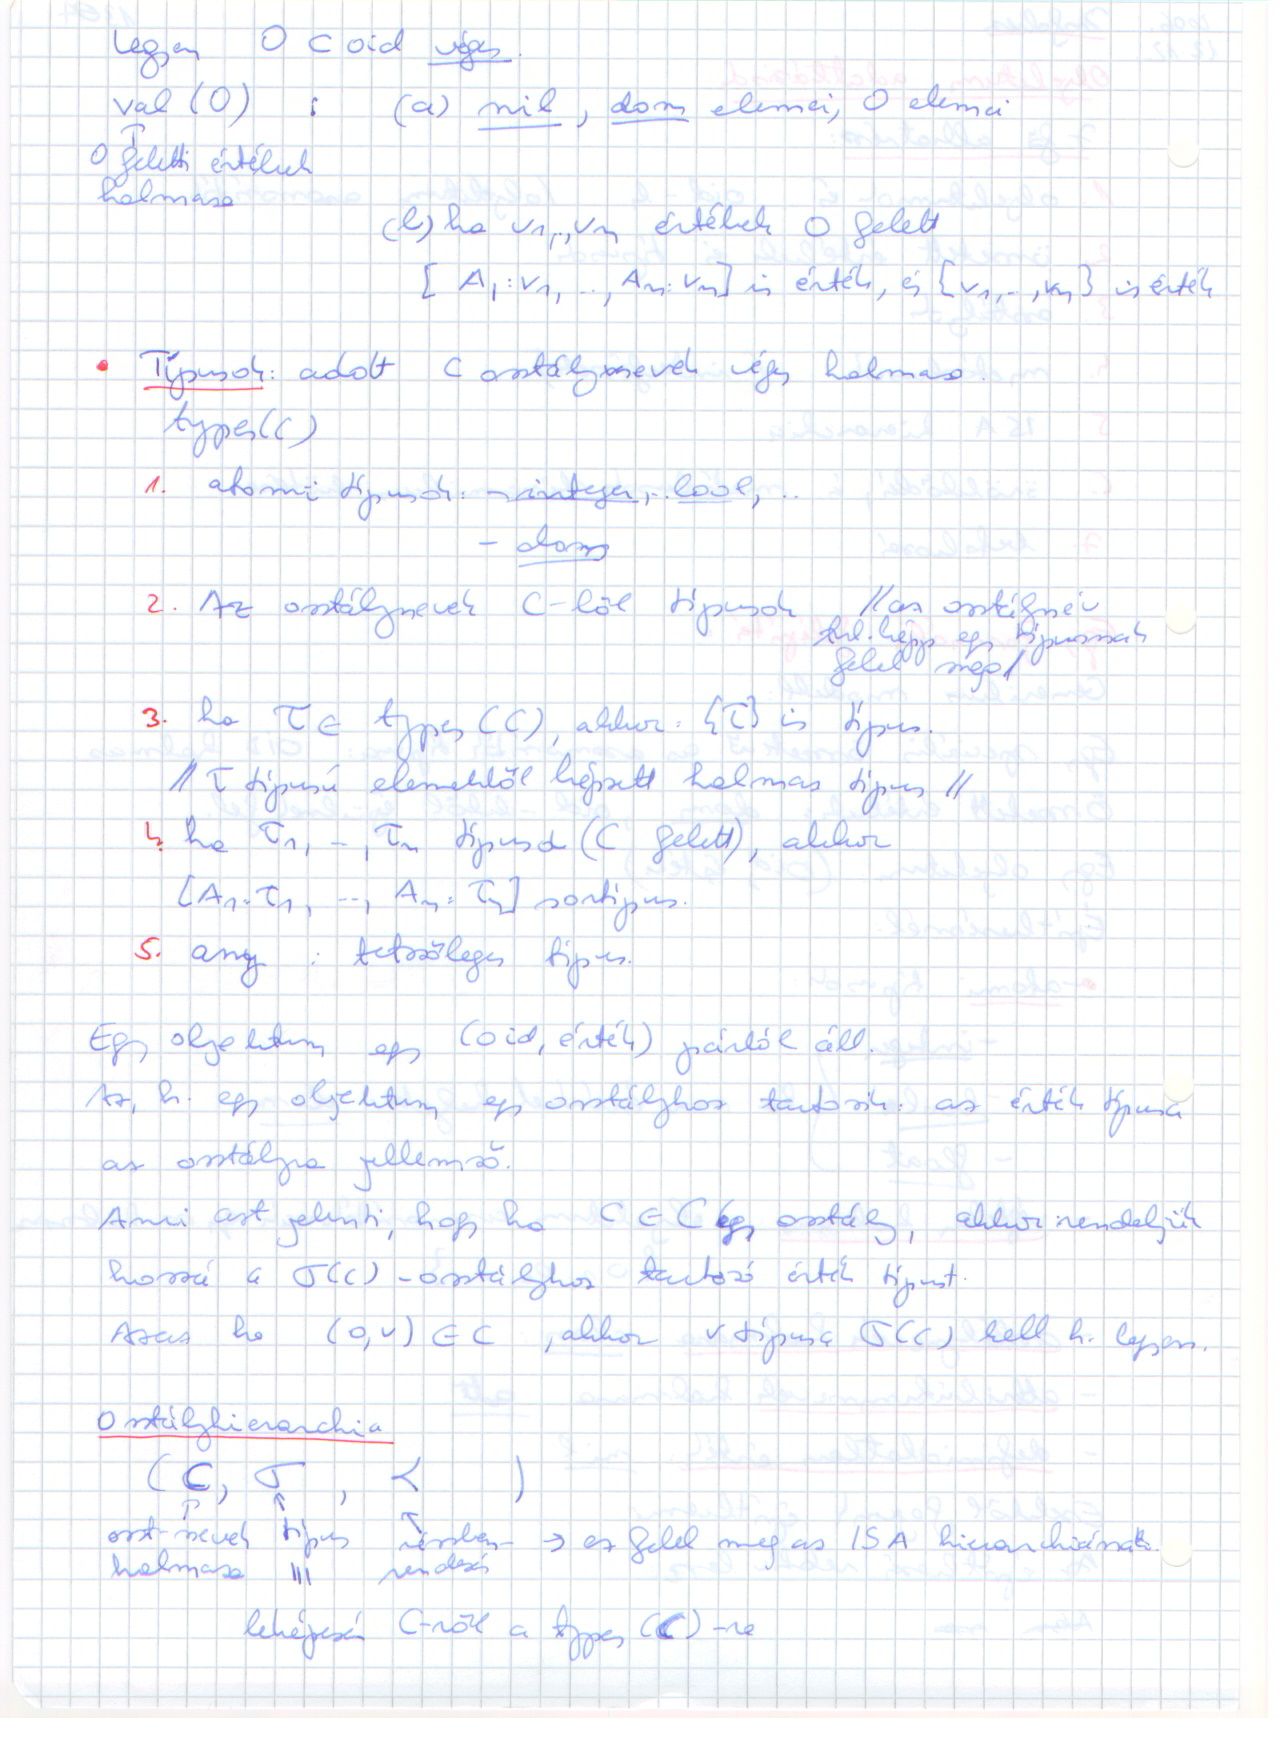 Legyen O ⊂ oid véges.
val (O) : (a) nil, dom elemei, O elemei
↑
O feletti értékek
halmaza
(b) ha v1,..,vn értékek O felett
[A1:v1, .., An:vn] is érték, és {v1,..,vn} is érték
• Típusok: adott C osztálynevek véges halmaza.
types(C)
1. atomi típusok: - integer, .. bool, ..
- dom
2. Az osztálynevek C-ből típusok //az osztálynév
tul.képp egy típusnak
felel meg//
3. ha τ ∈ types (C), akkor: {τ} is típus.
// τ típusú elemekből képzett halmaz típus //
4. ha τ1, .., τn típusok (C felett), akkor
[A1:τ1, .., An:τn] sortípus.
5. any : tetszőleges típus.
Egy objektum egy (oid, érték) párból áll.
Az, h. egy objektum egy osztályhoz tartozik: az érték típusa
az osztályra jellemző.
Ami azt jelenti, hogy ha c ∈ C egy osztály, akkor rendeljük
hozzá a σ(c) - osztályhoz tartozó érték típust.
Azaz ha (o,v) ∈ c, akkor v típusa σ(c) kell h. legyen.
Osztályhierarchia
(C, σ, ≺ )
↑ ↑ ↑
oszt-nevek típus részben- → ez felel meg az ISA hierarchiának.
halmaza ||| rendezés
leképezés C-ről a types (C)-re